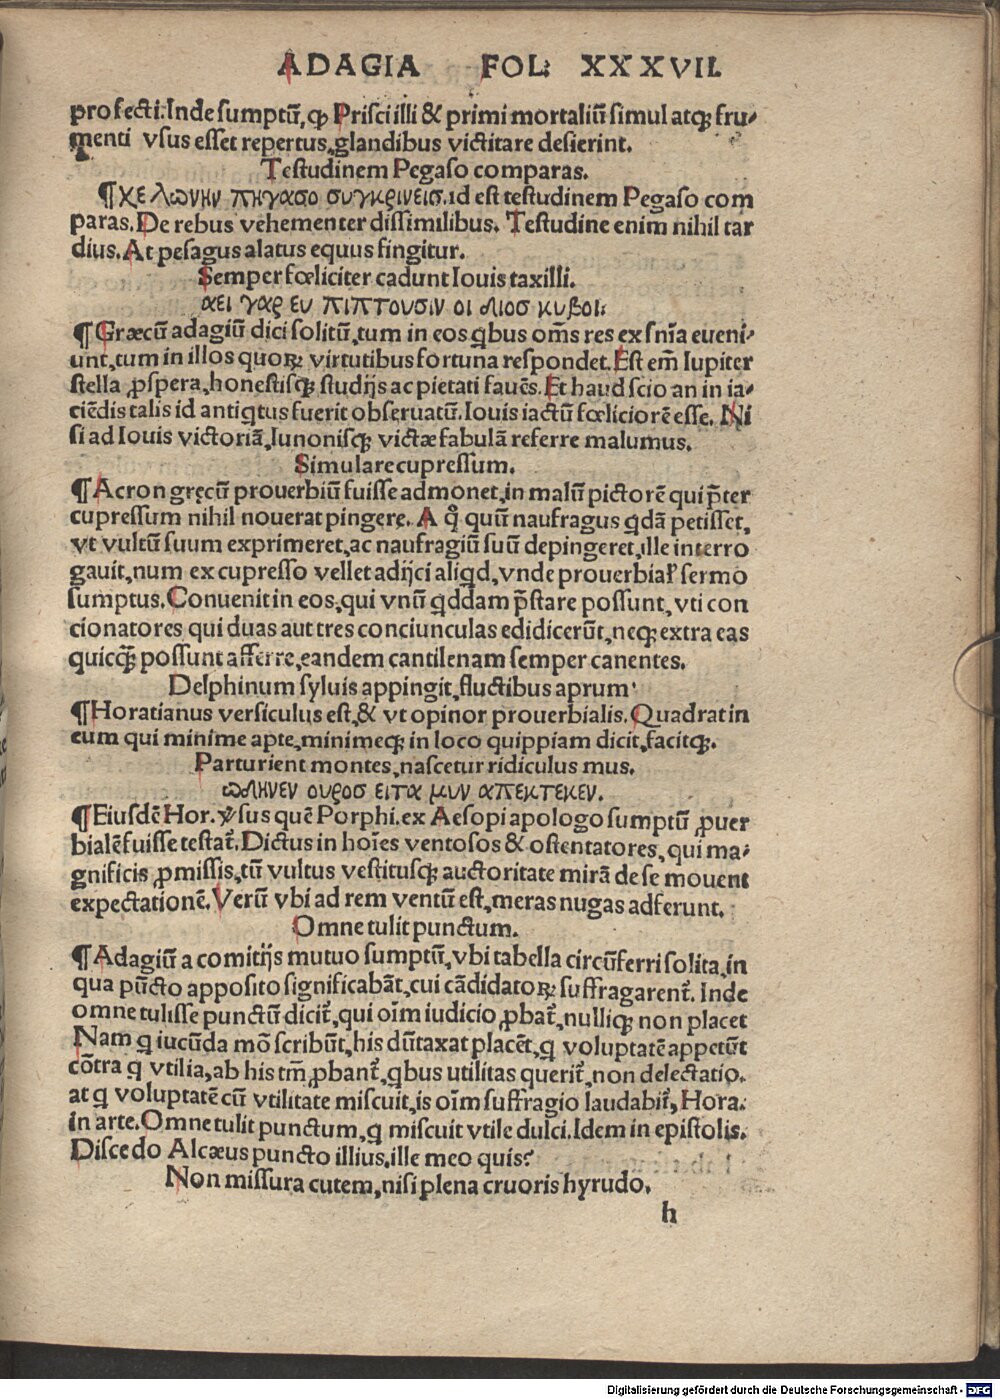 ADAGIA FOL: XXXVII.
profecti. Inde sumptū, ꝙ Prisci illi & primi mortaliū simul atqꝫ fru⸗
menti vsus esset repertus, glandibus victitare desierint.
Testudinem Pegaso comparas.
¶ χελωνην πηγασο συγκρινεισ. id est testudinem Pegaso com
paras. De rebus vehementer dissimilibus. Testudine enim nihil tar
dius. At pesagus alatus equus fingitur.
Semper fœliciter cadunt Iouis taxilli.
αει γαρ ευ πιπτουσιν οι διοσ κυβοι:
¶ Græcū adagiū dici solitū, tum in eos ꝗbus oēms res ex snīa eueni⸗
unt, tum in illos quoꝝ virtutibus fortuna respondet. Est em̄ Iupiter
stella ꝓspera, honestisqꝫ studijs ac pietati fauēs. Et haud scio an in ia⸗
ciēdis talis id antiꝗtus fuerit obseruatū. Iouis iactū fœliciorē esse. Ni
si ad Iouis victoriā, Iunonisqꝫ victæ fabulā referre malumus.
Simulare cupressum.
¶ Acron gręcū prouerbiū fuisse admonet, in malū pictorē qui p̄ter
cupressum nihil nouerat pingere. A qͦ quū naufragus ꝗdā petisset,
vt vultū suum exprimeret, ac naufragiū suū depingeret, ille interro
gauit, num ex cupresso vellet adijci aliꝗd, vnde prouerbial̕ sermo
sumptus. Conuenit in eos, qui vnū ꝗddam p̄stare possunt, vti con
cionatores qui duas aut tres conciunculas edidicerūt, neqꝫ extra eas
quicqꝫ̄ possunt afferre, eandem cantilenam semper canentes.
Delphinum syluis appingit, fluctibus aprum.
¶ Horatianus versiculus est, & vt opinor prouerbialis. Quadrat in
eum qui minime apte, minimeqꝫ in loco quippiam dicit, facitqꝫ.
Parturient montes, nascetur ridiculus mus.
ωδηνεν ουροσ ειτα μυν απεκτεκεν.
¶ Eiusdē Hor. v̕sus quē Porphi. ex Aesopi apologo sumptū ꝓuer
bialē fuisse testat̄. Dictus in hoīes ventosos & ostentatores, qui ma⸗
gnificis ꝓmissis, tū vultus vestitusqꝫ auctoritate mirā de se mouent
expectationē. Verū vbi ad rem ventū est, meras nugas adferunt.
Omne tulit punctum.
¶ Adagiū a comitijs mutuo sumptū, vbi tabella circūferri solita, in
qua pūcto apposito significabāt, cui cādidatoꝝ suffragarent̄. Inde
omne tulisse punctū dicit̄, qui oīm iudicio ꝓbat̄, nulliqꝫ non placet
Nam ꝗ iucūda mō scribūt, his dūtaxat placēt, ꝗ voluptatē appetūt
cōtra ꝗ vtilia, ab his tm̄ ꝓbant̄, ꝗbus utilitas querit̄, non delectatio.
at ꝗ voluptatē cū vtilitate miscuit, is oīm suffragio laudabit̄, Hora.
in arte. Omne tulit punctum, ꝗ miscuit vtile dulci. Idem in epistolis.
Discedo Alcæus puncto illius, ille meo quis?
Non missura cutem, nisi plena cruoris hyrudo.
h
Digitalisierung gefördert durch die Deutsche Forschungsgemeinschaft - DFG